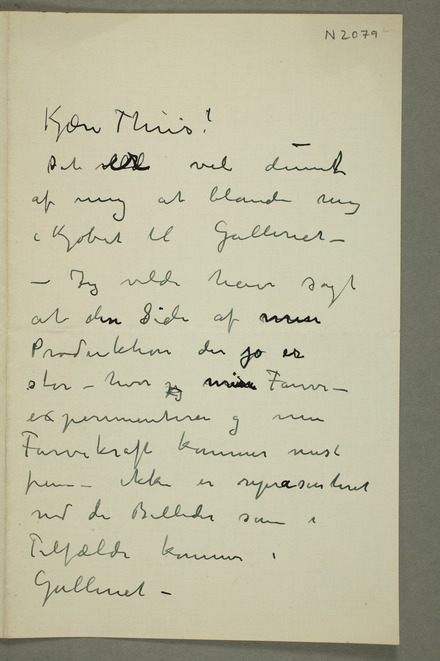 N 2079
Kjære Thiis!
Det er vel dumt
af mig at blande mig
i Kjøbet til Galleriet –
– Jeg vilde have sagt
at den Side af min
Produktion der jo er
stor – hvor jeg mine Farve-
experimenter og min
Farvekraft kommer mest
frem – ikke er repræsenteret
ved de Billeder som i
Tilfælde kommer i
Galleriet –